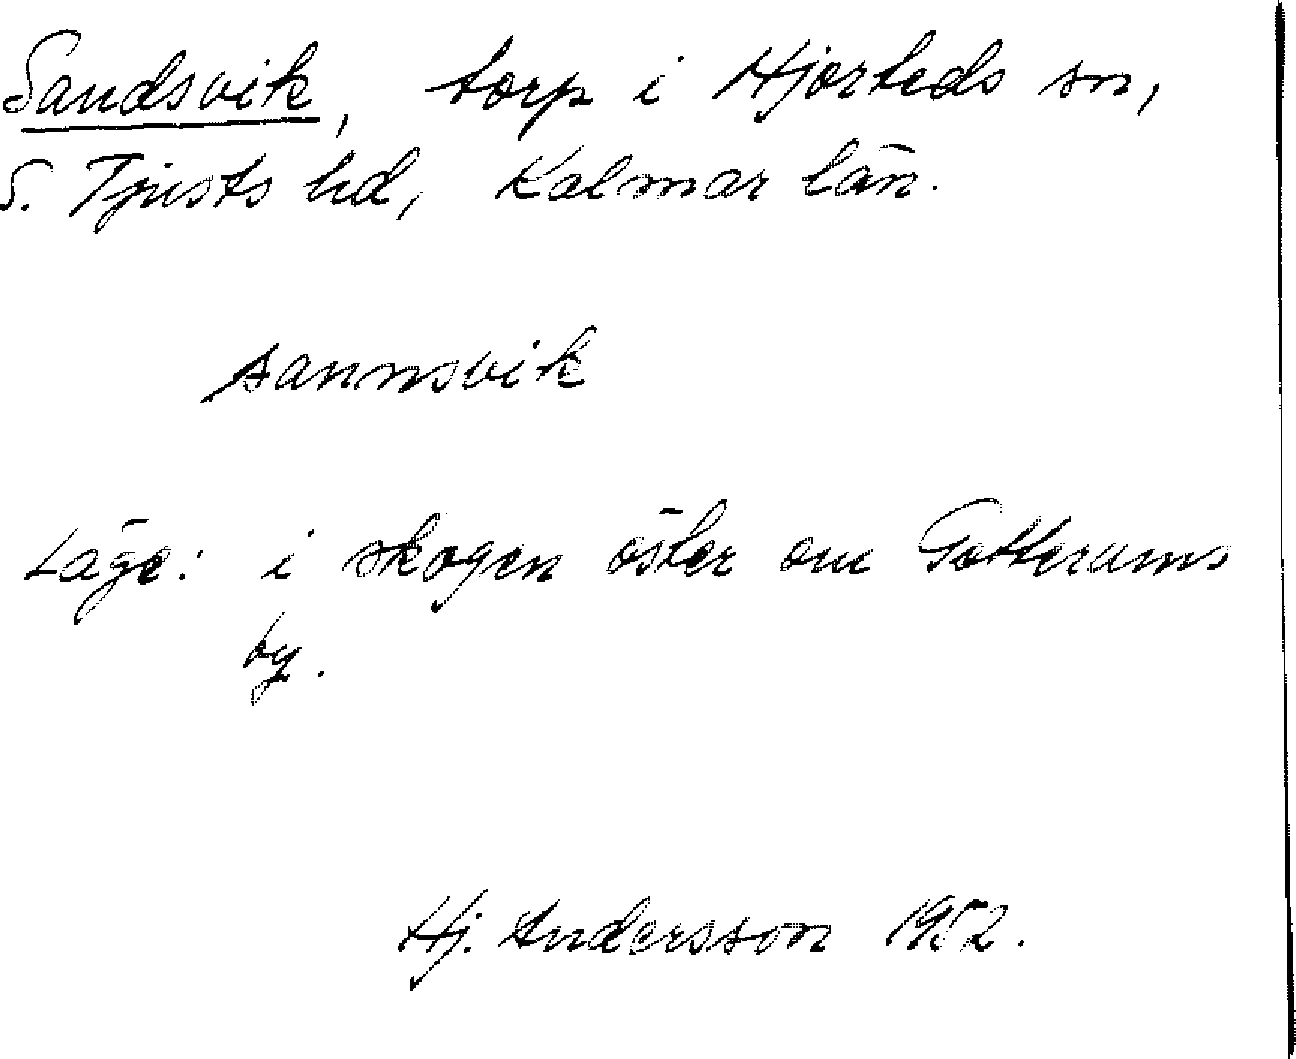 Sandsvik, torp i Hjorteds sn,
S. Tjusts hd, Kalmar län.
sannsvik
Läge: i skogen öster om Totterums
by.
Hj. Andersson 1952.